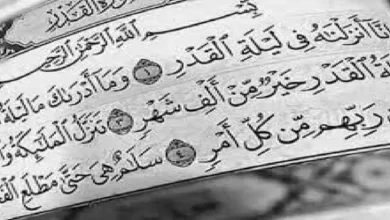 سورة القدر
بسم الله الرحمن الرحيم
نا أنزلناه فى ليلة القدر ١ وما أدرىك ما ليلة
ة القدر خير من ألف شهر ٣ تنزل الملىكة وا
ربهم من كل أمر ٤ سلم هى حتى مطلع الف